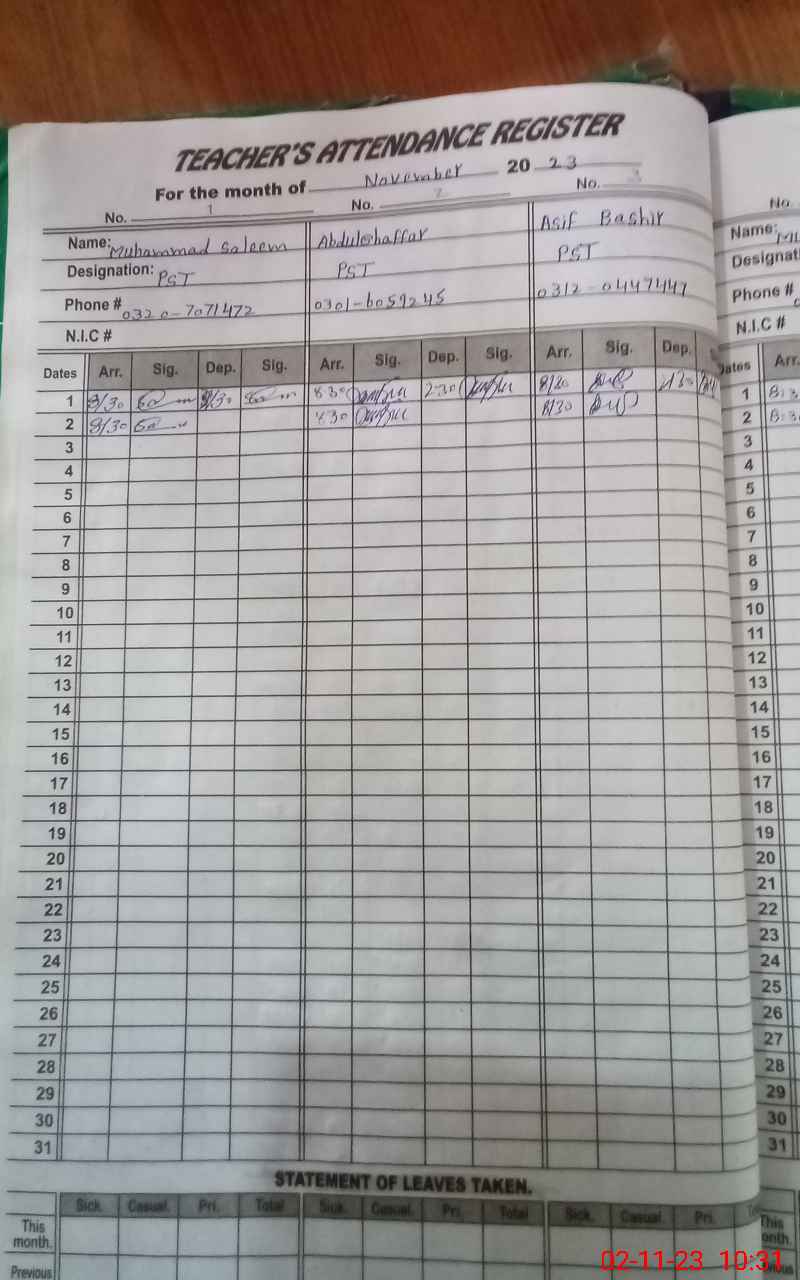 TEACHER'S ATTENDANCE REGISTER
For the month of November 20 23
No. 1 No. 2 No. 3 No.
Name: Muhammad Saleem Abdulghaffar Asif Bashir Name:
Designation: PST PST PST Designati
Phone # 0320-7071472 0301-6059245 0312-0447447 Phone #
N.I.C # N.I.C #
Dates Arr. Sig. Dep. Sig. Arr. Sig. Dep. Sig. Arr. Sig. Dep. Dates Arr.
1 8/30 8.30 2.30 8/30 2/30 1 8:3
2 8/30 8.30 8/30 2 8:3
3 3
4 4
5 5
6 6
7 7
8 8
9 9
10 10
11 11
12 12
13 13
14 14
15 15
16 16
17 17
18 18
19 19
20 20
21 21
22 22
23 23
24 24
25 25
26 26
27 27
28 28
29 29
30 30
31 31
STATEMENT OF LEAVES TAKEN.
Sick. Casual. Pri. Total Sick. Casual. Pri. Total Sick. Casual. Pri.
This month. This onth.
Previous
02-11-23 10:31